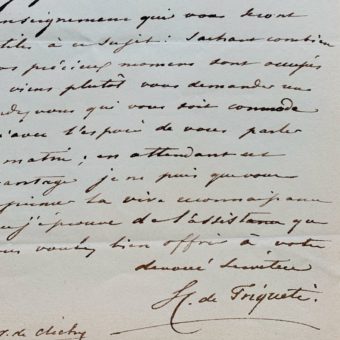 nseignements qui vous seront
tiles à ce sujet. Sachant combien
os précieux momens sont occupés
viens plutôt vous demander un
ndez vous qui vous soit commode
avec l'espoir de vous parler
matin; en attendant cet
antage je ne puis que vous
primer la vive reconnaissance
que j'éprouve de l'assistance que
ous voulez bien offrir à votre
dévoué serviteur
H. de Triqueti.
r. de Clichy